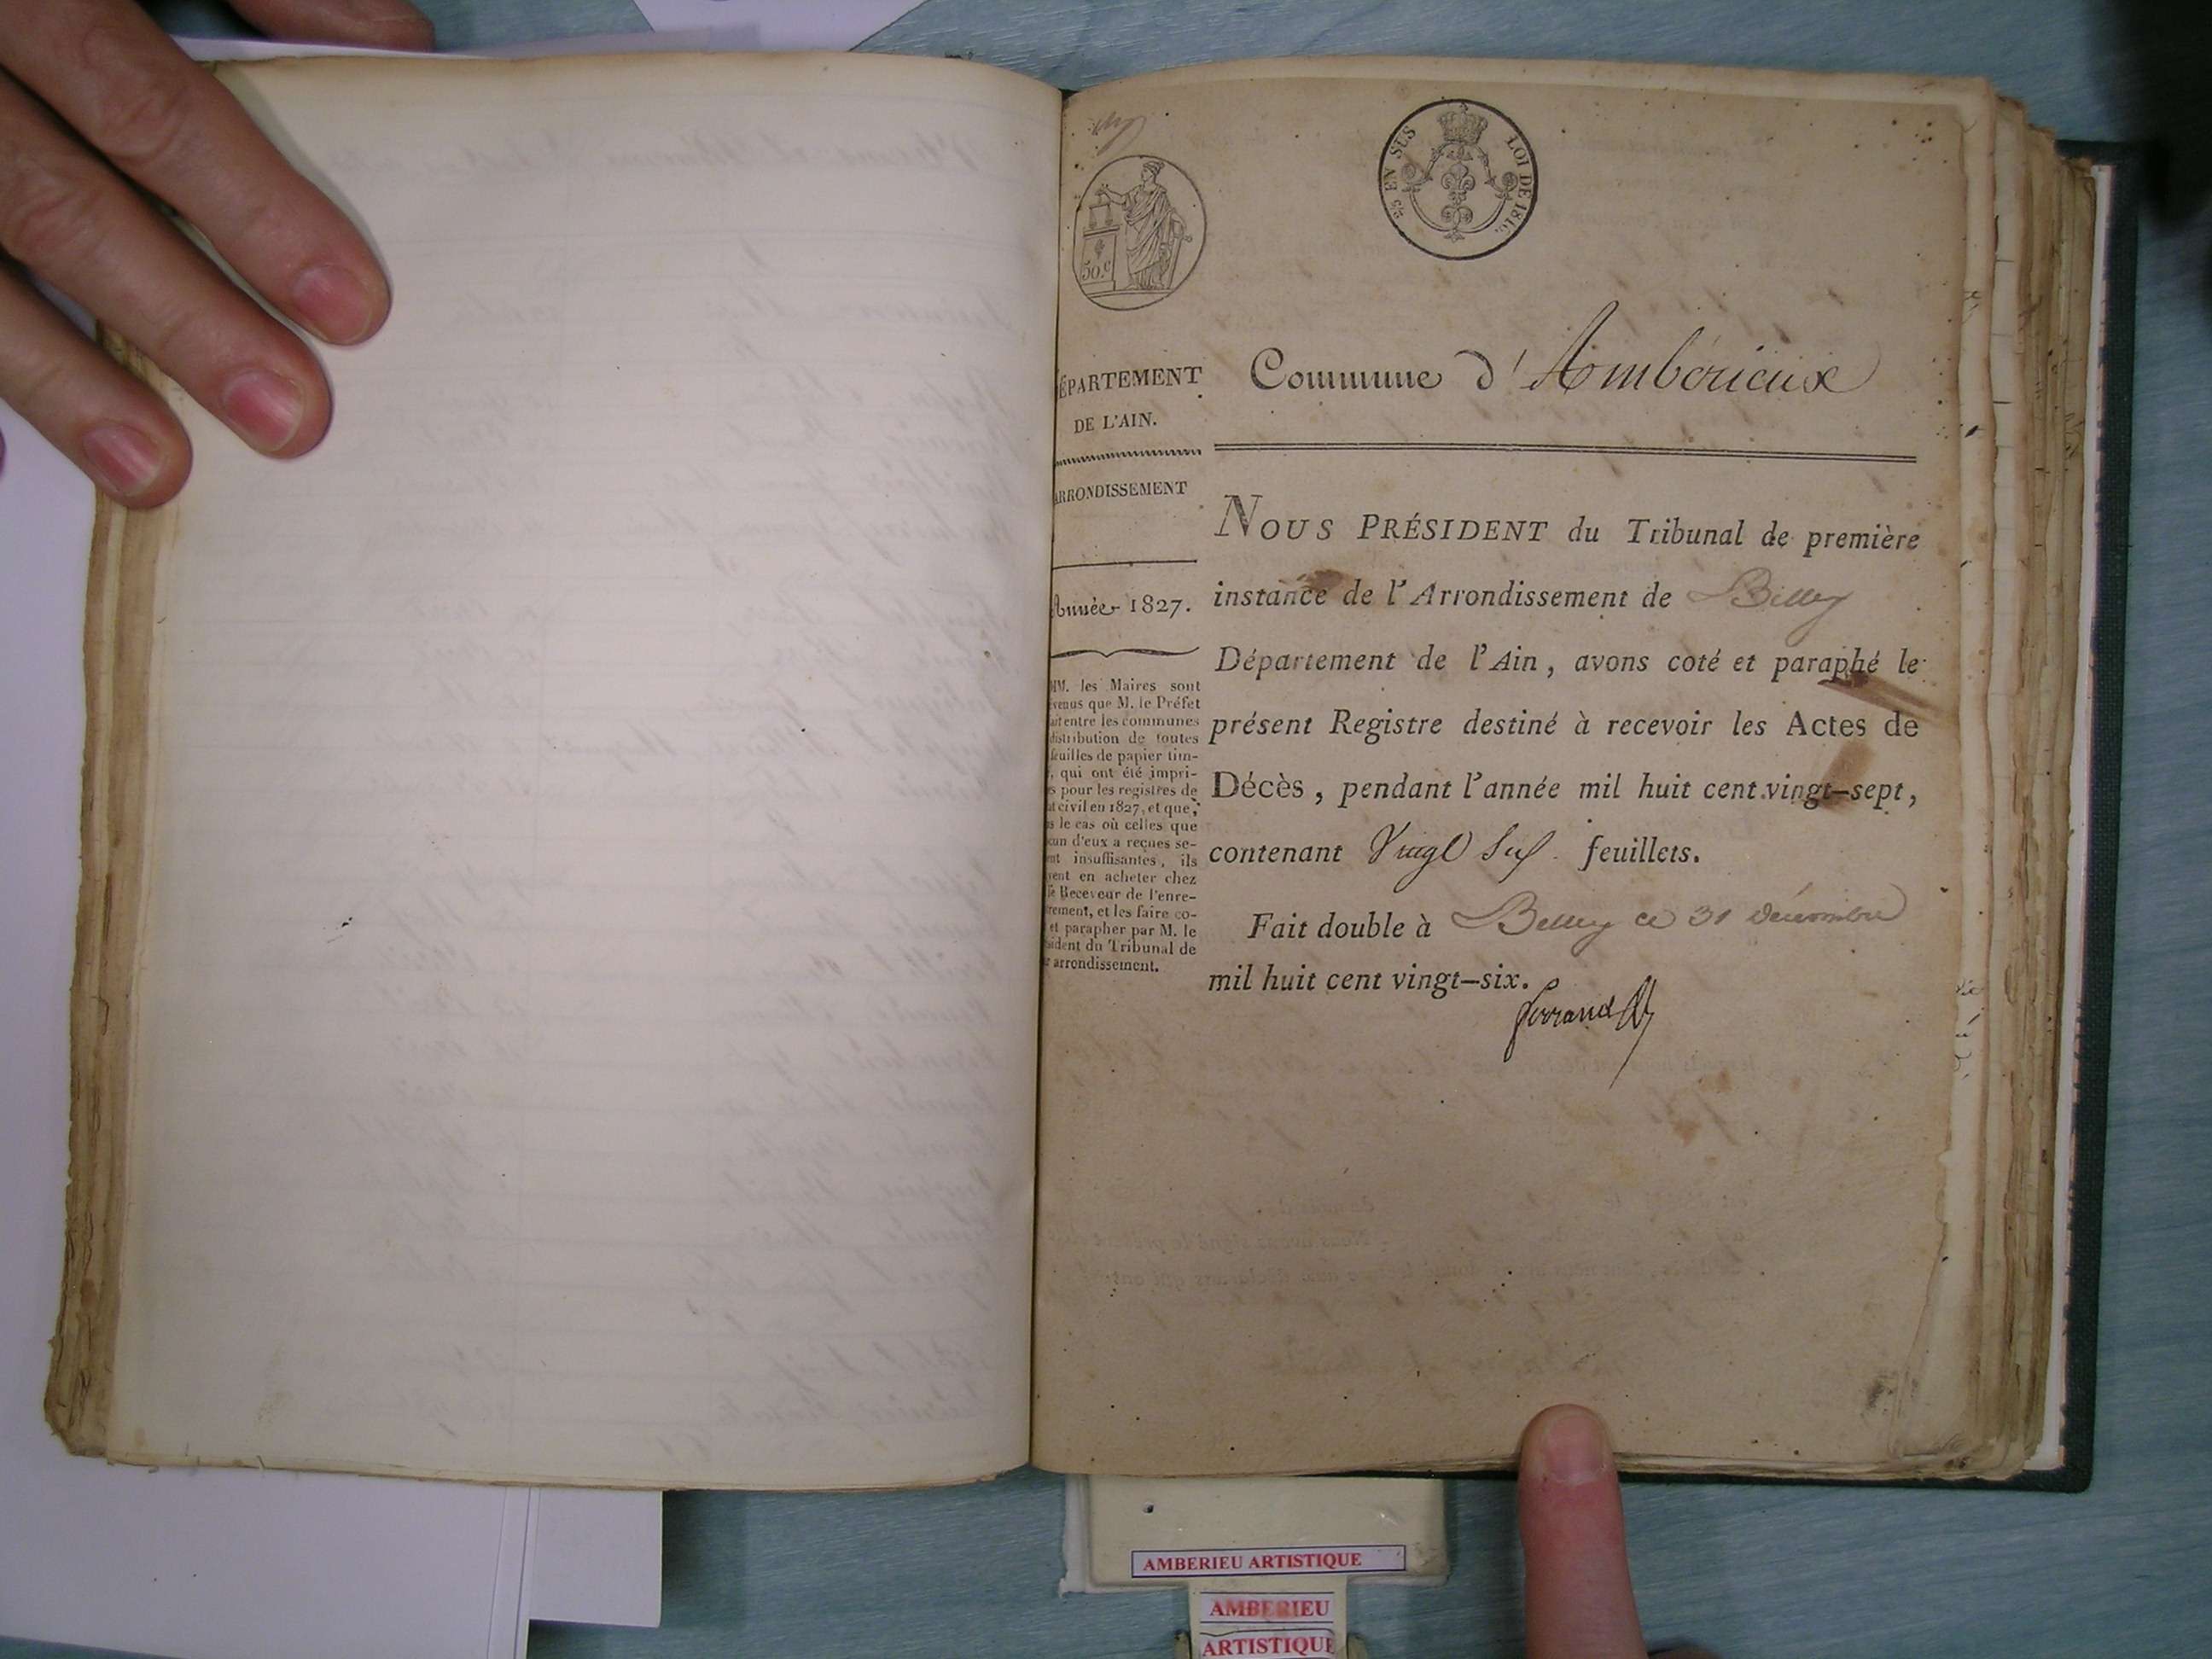 50.c
2/5 EN SUS
LOI DE 1816.
ÉPARTEMENT
DE L'AIN.
ARRONDISSEMENT
Année 1827.
MM. les Maires sont
evenus que M. le Préfet
ait entre les communes
distribution de toutes
feuilles de papier tim-
, qui ont été impri-
s pour les registres de
at civil en 1827, et que,
s le cas où celles que
cun d'eux a reçues se-
ent insuffisantes, ils
vent en acheter chez
le Receveur de l'enre-
rement, et les faire co-
et parapher par M. le
sident du Tribunal de
r arrondissement.
Commune d'Ambérieux
NOUS PRÉSIDENT du Tribunal de première
instance de l'Arrondissement de Belley
Département de l'Ain, avons coté et paraphé le
présent Registre destiné à recevoir les Actes de
Décès, pendant l'année mil huit cent vingt-sept,
contenant Vingt Six feuillets.
Fait double à Belley ce 31 Décembre
mil huit cent vingt-six.
ferrand
AMBERIEU ARTISTIQUE
AMBERIEU
ARTISTIQUE